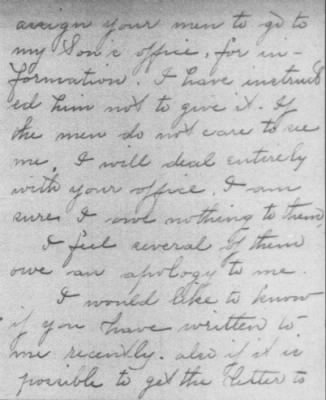 assign your men to go to
my Son's office, for in-
formation. I have instruct
ed him not to give it. If
the men do not care to see
me, I will deal entirely
with your office. I am
sure I owe nothing to them,
I feel several of them
owe an apology to me.
I would like to know
if you have written to
me recently. also if it is
possible to get the letter to